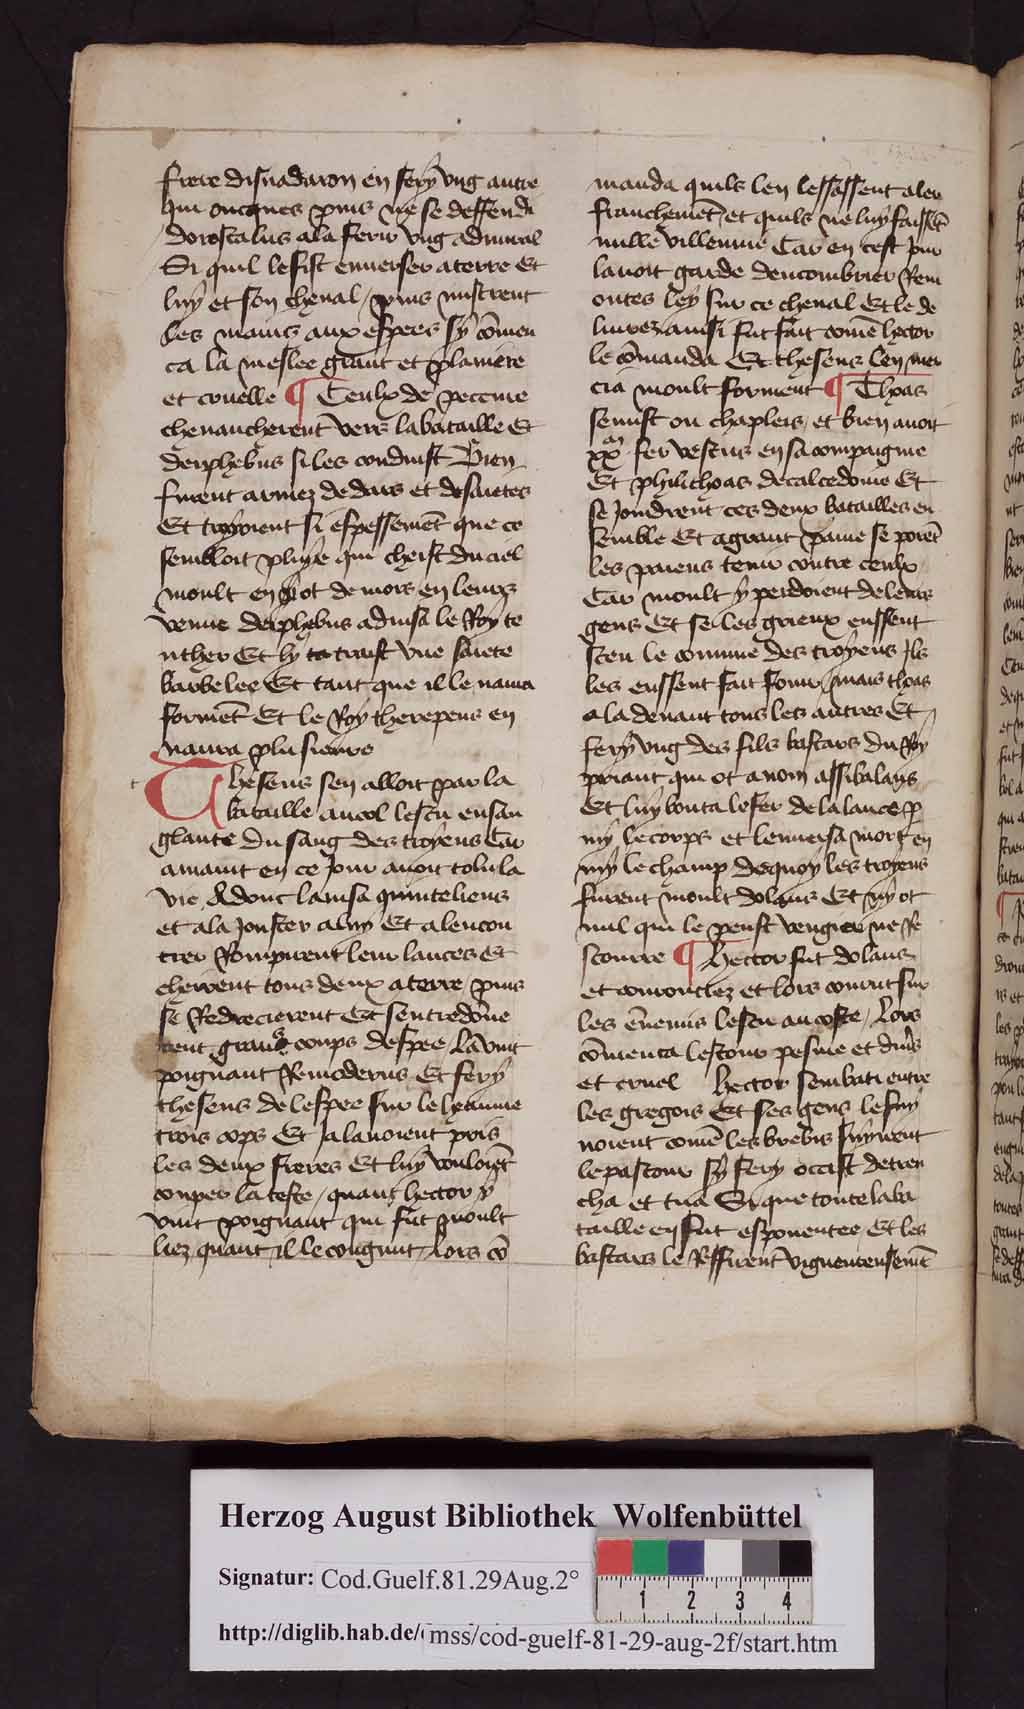 frere disnadaron en fery vng autre
qui oncques puis ne se deffendi
doroscalus ala ferir vng admiral
Si quil le fist enuerser a terre Et
luy et son cheual / puis mistrent
les mains aux espees sy cōmen
ca la meslee grant et planiere
et cruelle ¶ Ceulx de peceme
cheuaucherent vers la bataille Et
deyphebus si les conduist Bien
furent armez de dars et de saietes
Et trayoient si espessemēt que ce
sembloit pluye qui cheist du ciel
moult en y ot de mors en leurs
venue deyphebus aduisa le Roy te
uther Et ly traist vne saiete
barbelee Et tant que il le naura
formēt Et le Roy therepeus en
naura plusieurs
Theseus sen alloit par la
bataille au col lescu ensan
glante du sang des troyens Car
a maint en ce jour auoit tolu la
vie Adonc lauisa quinteliens
et ala jouster a luy Et a lencon
trer Rompirent leur lances Et
cheirent tous deux a terre puis
se Redrecierent Et sentredōne
rent grans coups despee La vint
poignant Remoderus Et fery
theseus de lespee sur le heaume
trois cops Et ja lauoient pris
les deux freres Et luy vouloiēt
couper la teste / quant hector y
vint poignant qui fut moult
liez quant il le congnut / Lors cō
manda quils len lessassent aler
franchemēt et quils ne luy faissēt
nulle villennie Car en cest jour
lauoit garde dencombrier Rem
ontes ley sur ce cheual Et le de
liurez ainsi fut fait comē hector
le cōmanda Et theseus len mer
cia moult forment ¶ Thoas
se mist ou chapleis / et bien auoit
xx m fer vestus en sa compaignie
Et philithoas de calcedoine Et
se joindrent ces deux batailles en
semble Et a grant paine se porēt
les paiens tenir contre ceulx
Car moult y perdoient de leurs
gens Et se les grieux eussent
sceu le conuine des troyens Ils
les eussent fait fouir / mais thoas
ala deuant tous les autres Et
fery vng des fils bastars du Roy
priant qui ot a nom assibalans
Et luy bouta le fer de la lance p
my le corps et lenuersa mort en
my le champ de quoy les troyens
furent moult dolans Et ny ot
nul qui le peust vengier ne Re
scourre ¶ Hector fut dolans
et courouciez et lors courut sur
les ēnemis lescu au coste / Lors
cōmenca lestour pesme et durs
et cruel Hector sembati entre
les gregois Et ses gens le suy
uoient comē les brebis suyuent
le pastour sy fery occist detren
cha et tua Si que toute la ba
taille en fut espouentee Et les
bastars le Reffirent viguereusemēt
Herzog August Bibliothek Wolfenbüttel
Signatur: Cod.Guelf.81.29Aug.2°
1 2 3 4
http://diglib.hab.de/mss/cod-guelf-81-29-aug-2f/start.htm